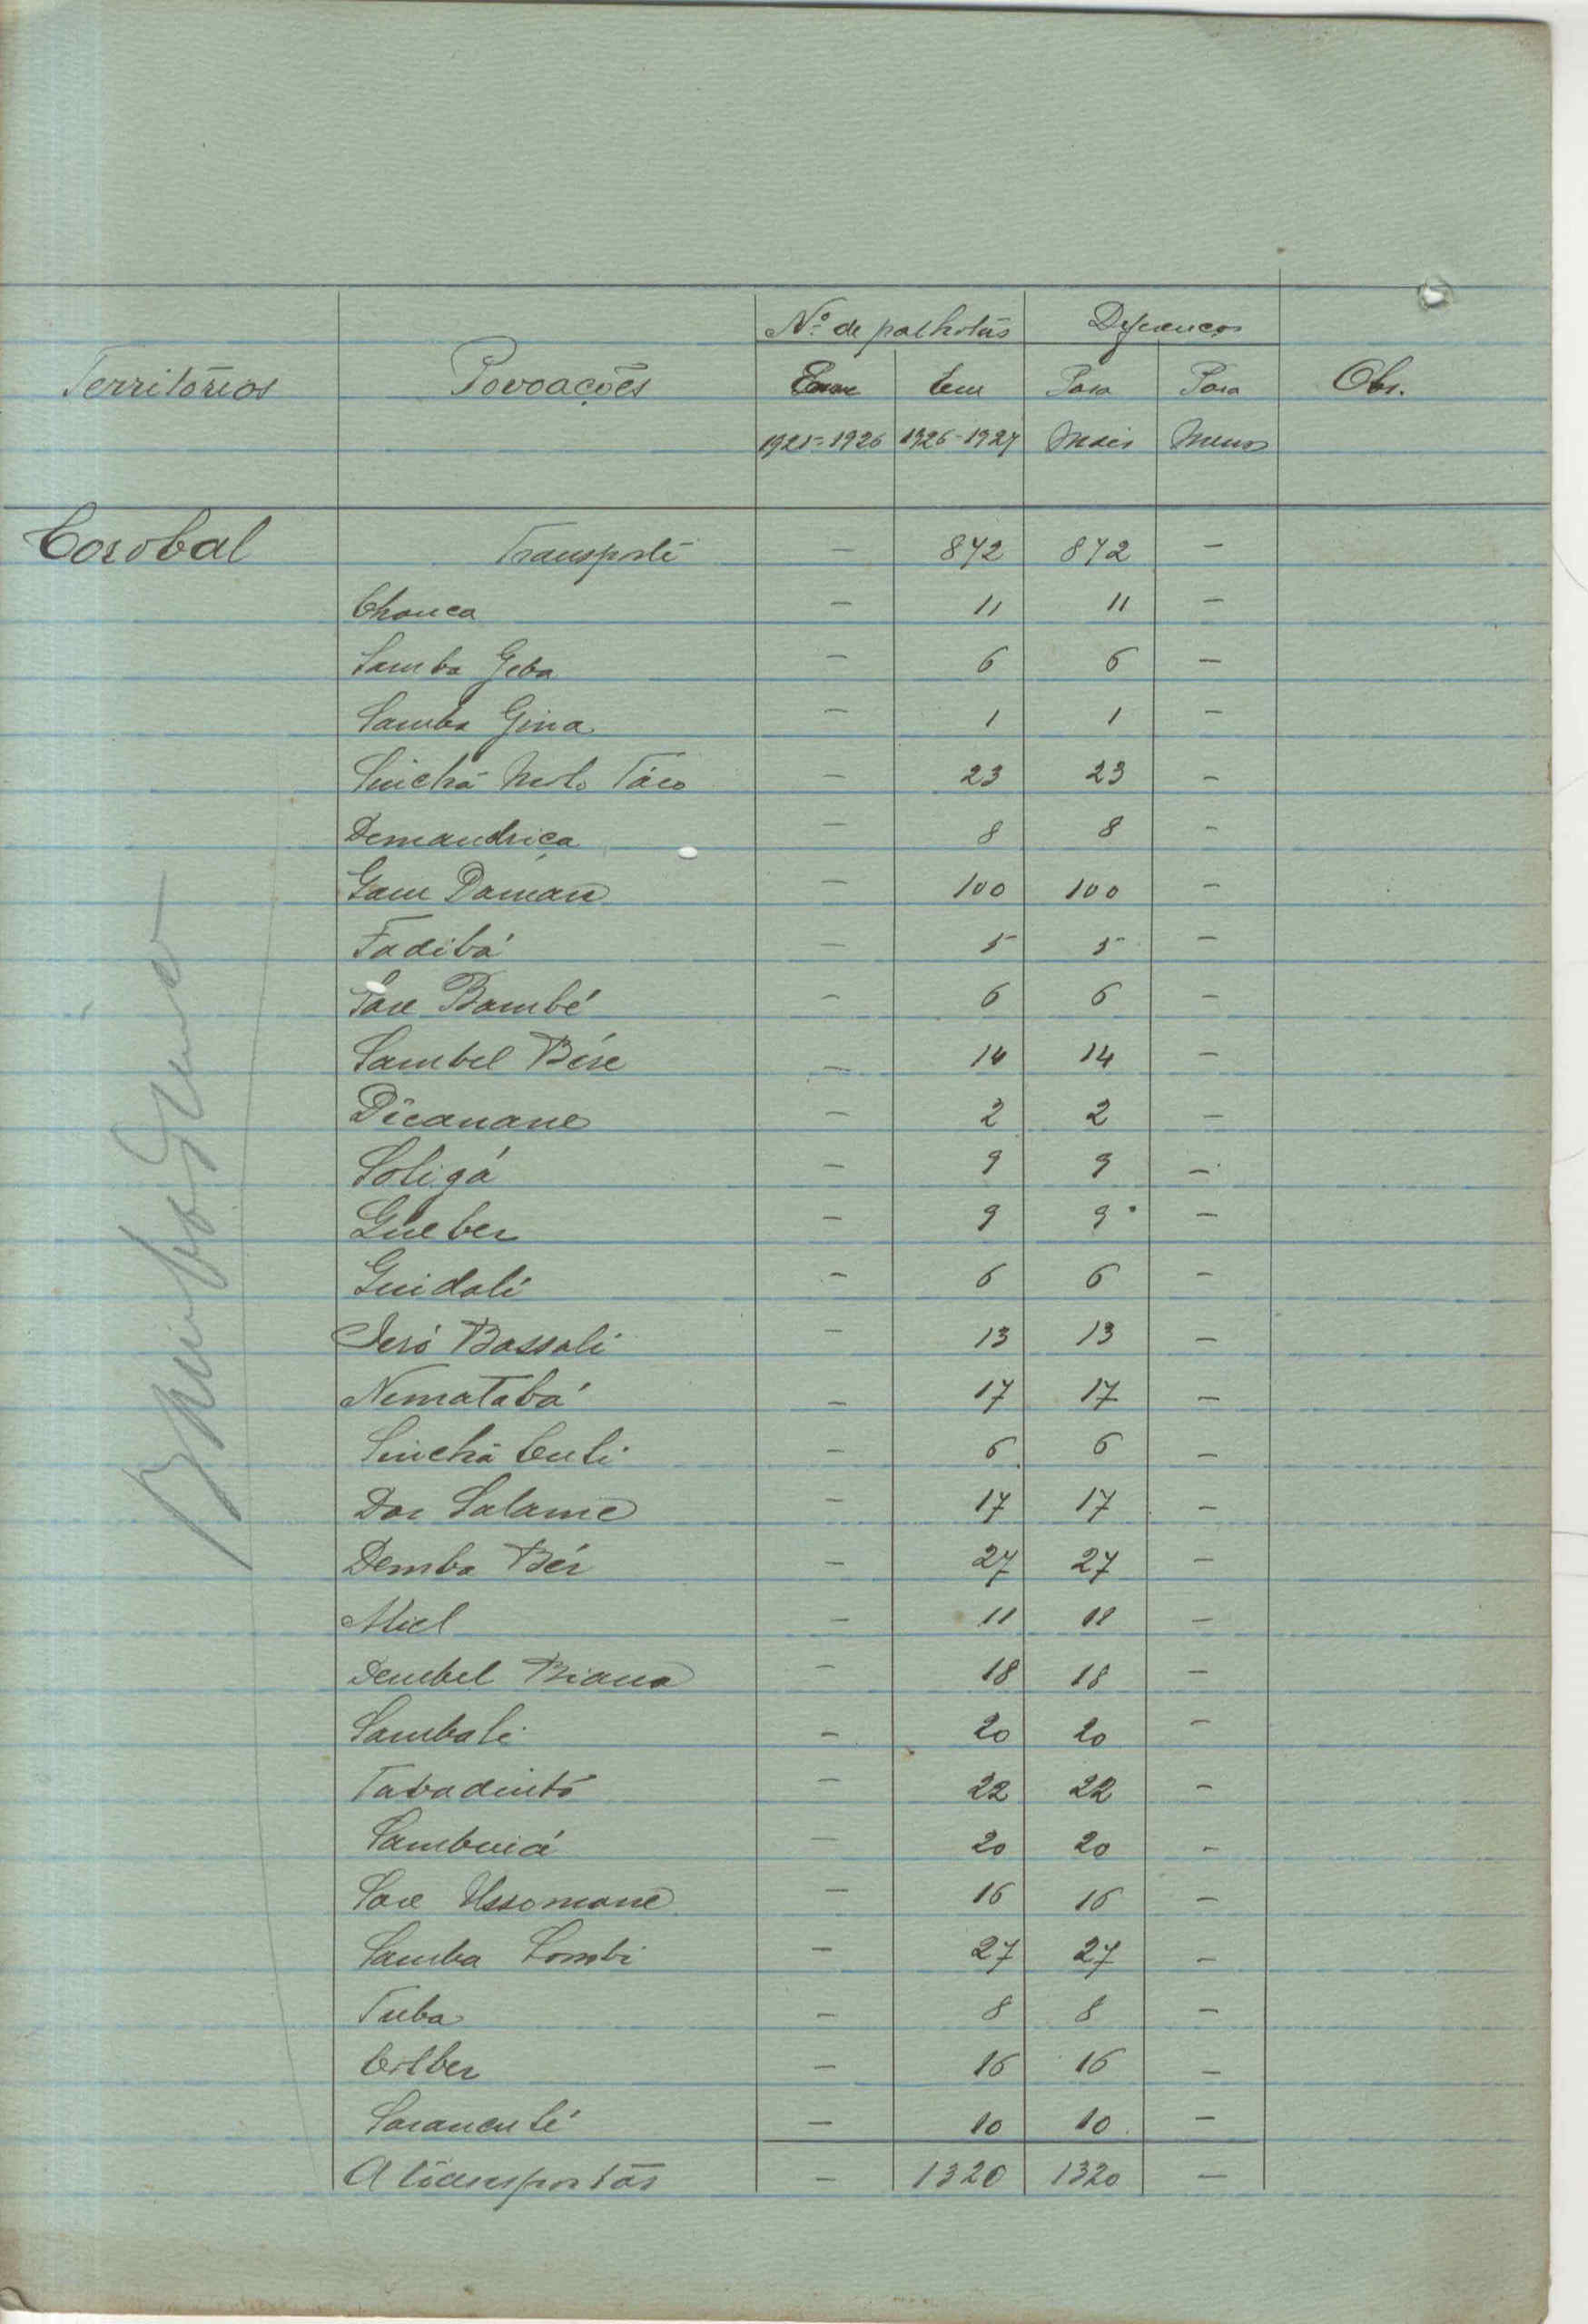 Nº de palhotas Diferenças
Territórios Povoações Em Em Para Para Obs.
1925-1926 1926-1927 Mais Menos
Corobal Transporte — 872 872 —
Chanca — 11 11 —
Samba Geba — 6 6 —
Samba Gina — 1 1 —
Sinchã Molo Táco — 23 23 —
Demandriça — 8 8 —
Gam Daman — 100 100 —
Fadibá — 5 5 —
Sare Bambé — 6 6 —
Sambel Bére — 14 14 —
Dicanane — 2 2 —
Soligá — 9 9 —
Gueber — 9 9 —
Guidali — 6 6 —
Seró Bassali — 13 13 —
Nematabá — 17 17 —
Sinchã Cuti — 6 6 —
Dar Salame — 17 17 —
Demba Bér — 27 27 —
Miel — 11 11 —
Dembel Biana — 18 18 —
Sambali — 20 20 —
Tabadintó — 22 22 —
Sambuiá — 20 20 —
Sare Ussomane — 16 16 —
Samba Lombi — 27 27 —
Tuba — 8 8 —
Colber — 16 16 —
Sarancuté — 10 10 —
A transportar — 1320 1320 —